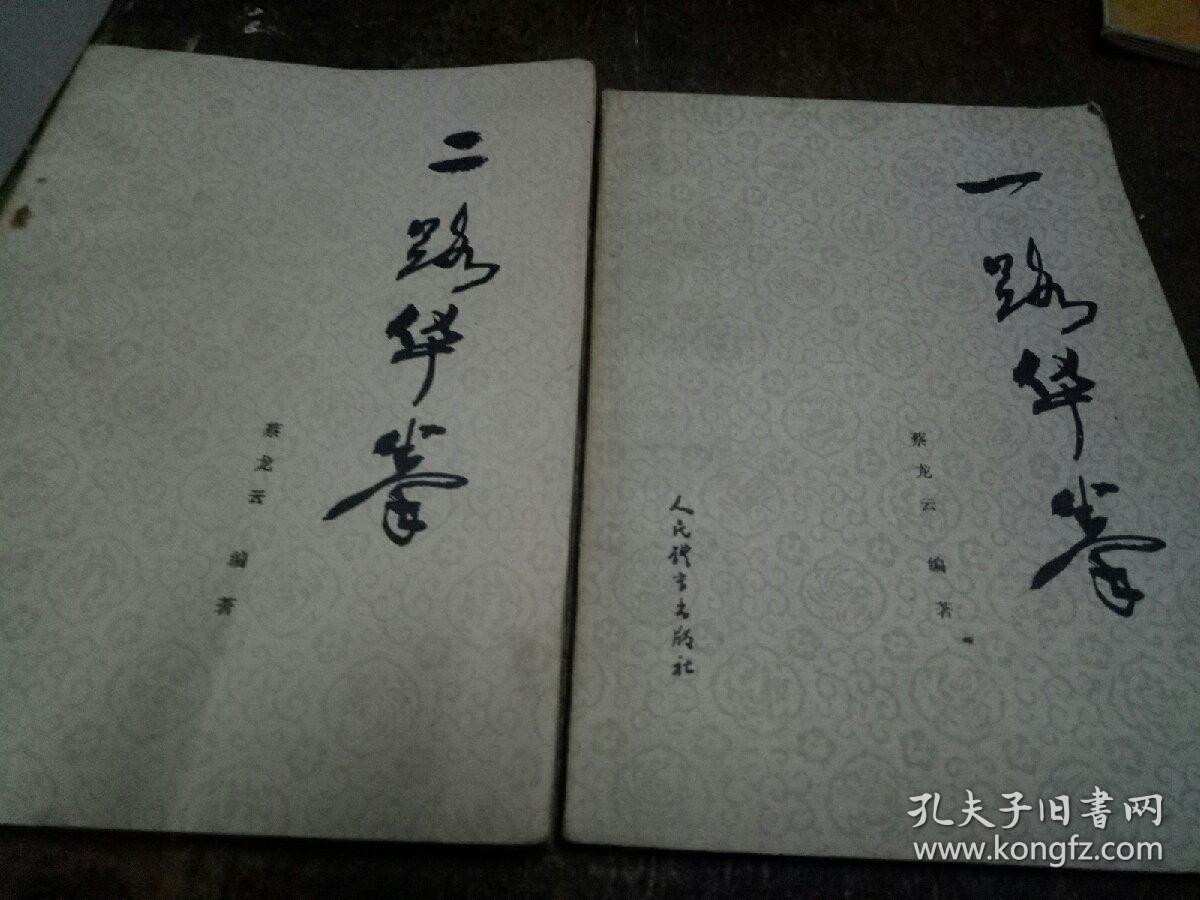 二路华拳
蔡龙云 编著
一路华拳
蔡龙云 编著
人民体育出版社
孔夫子旧書网
www.kongfz.com